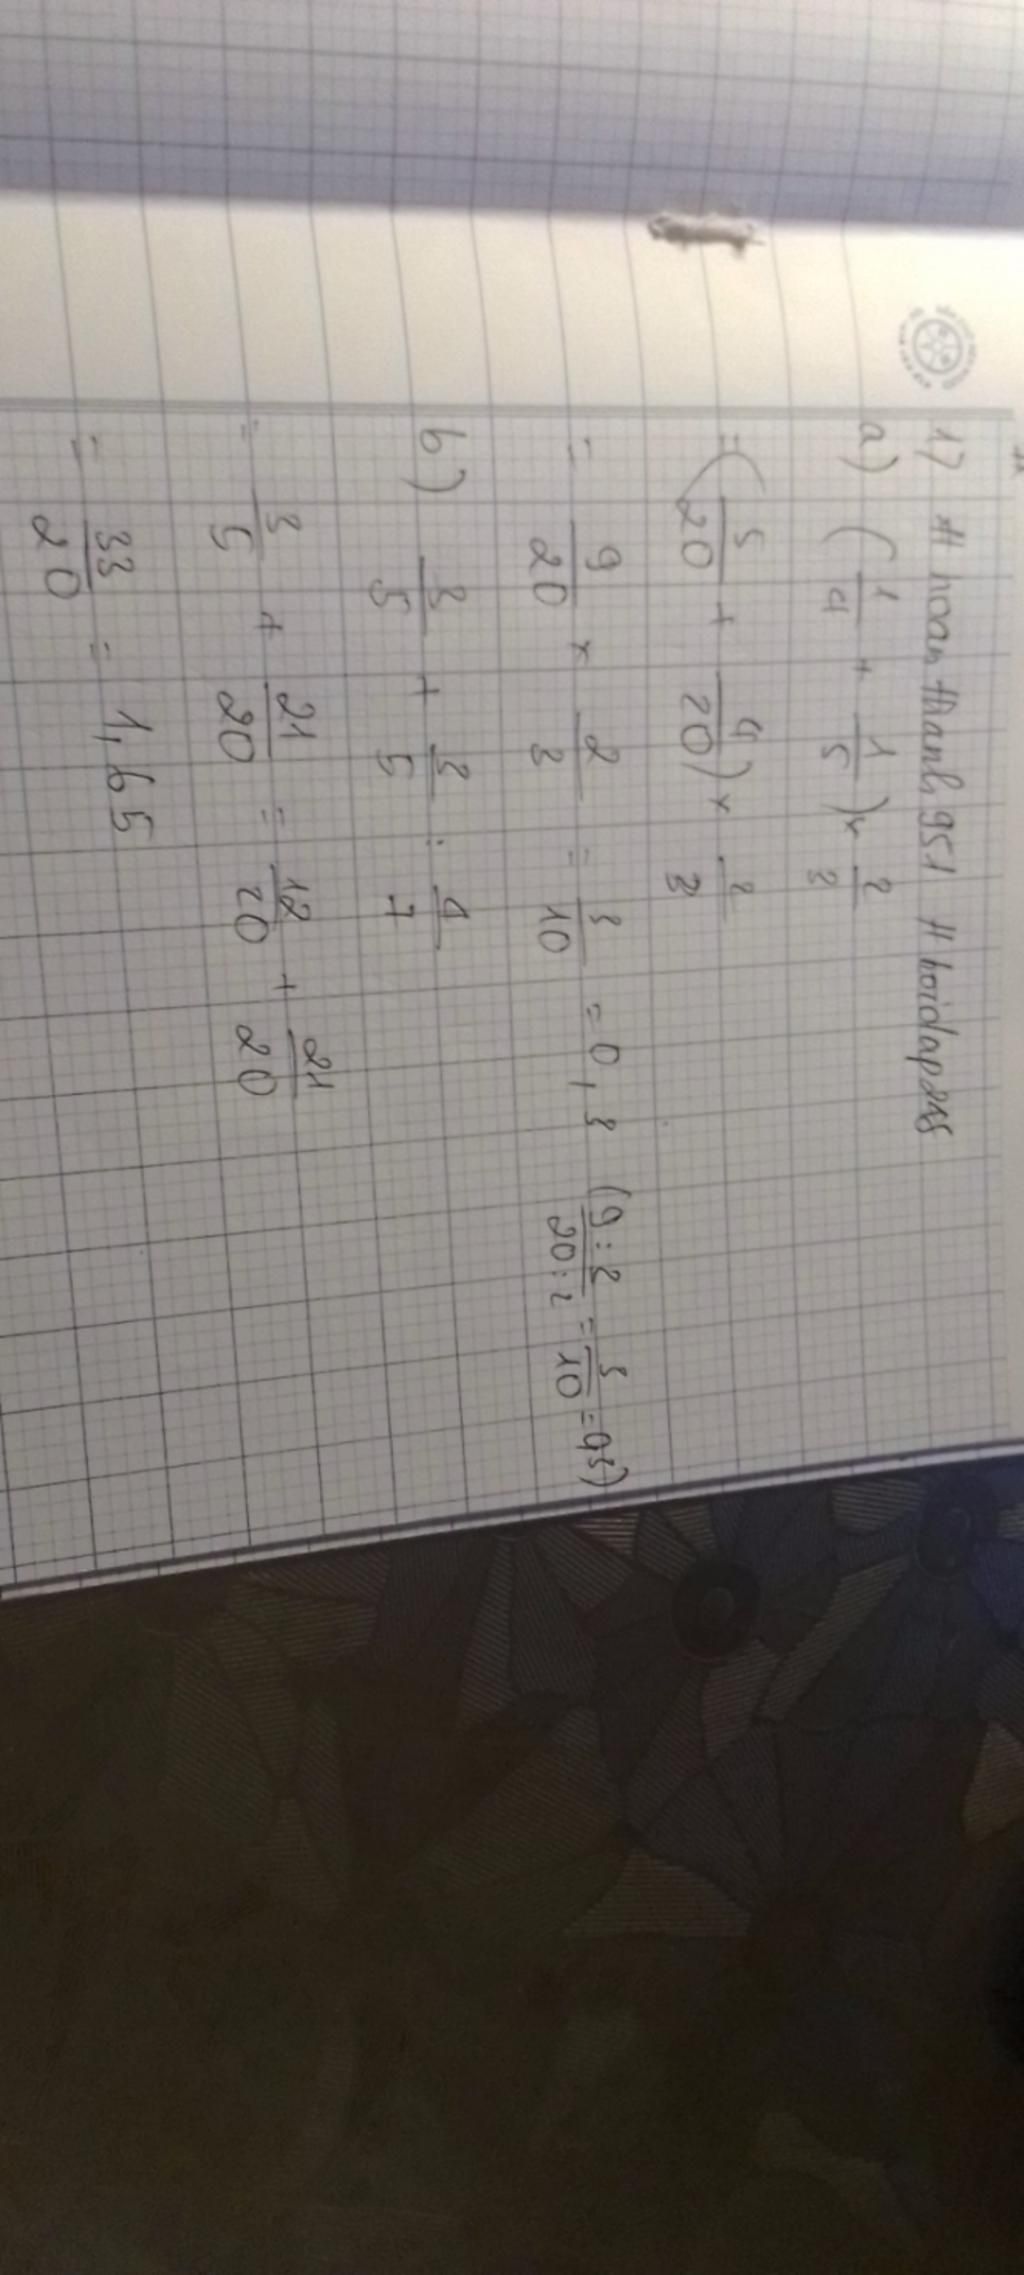 1) # hoanthanh951 # hoidap247
a) (1/4 + 1/5) x 2/3
= (5/20 + 4/20) x 2/3
= 9/20 x 2/3 = 3/10 = 0,3 (9:2/20:2 = 3/10 = 0,3)
b) 3/5 + 3/5 : 4/7
= 3/5 + 21/20 = 12/20 + 21/20
= 33/20 = 1,65